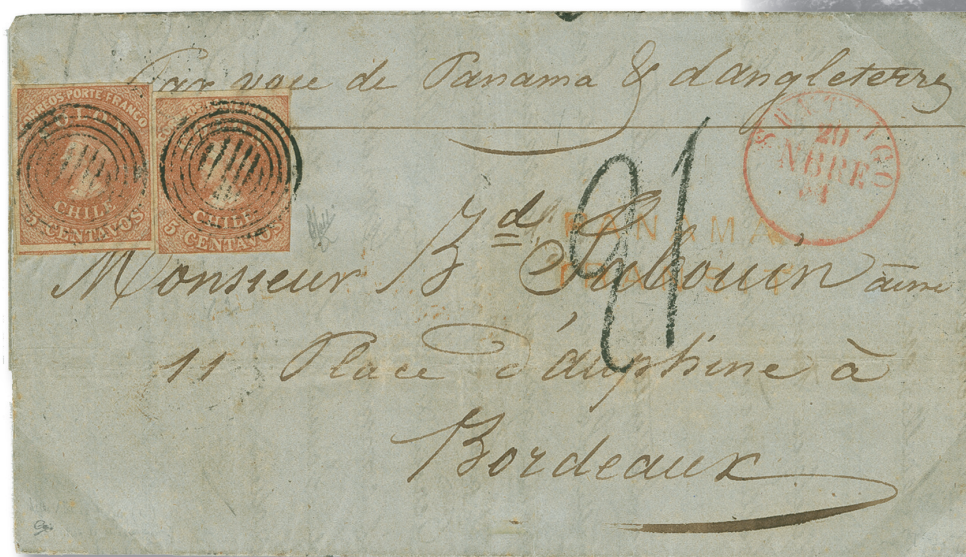 Par voie de Panama & d'angleterre
CORREOS PORTE FRANCO
COLON
CHILE
5 CENTAVOS
CHILE
5 CENTAVOS
SANTIAGO
29
NBRE
21
PANAMA
Monsieur Bd Subouin aine
11 Place d'auphine à
Bordeaux